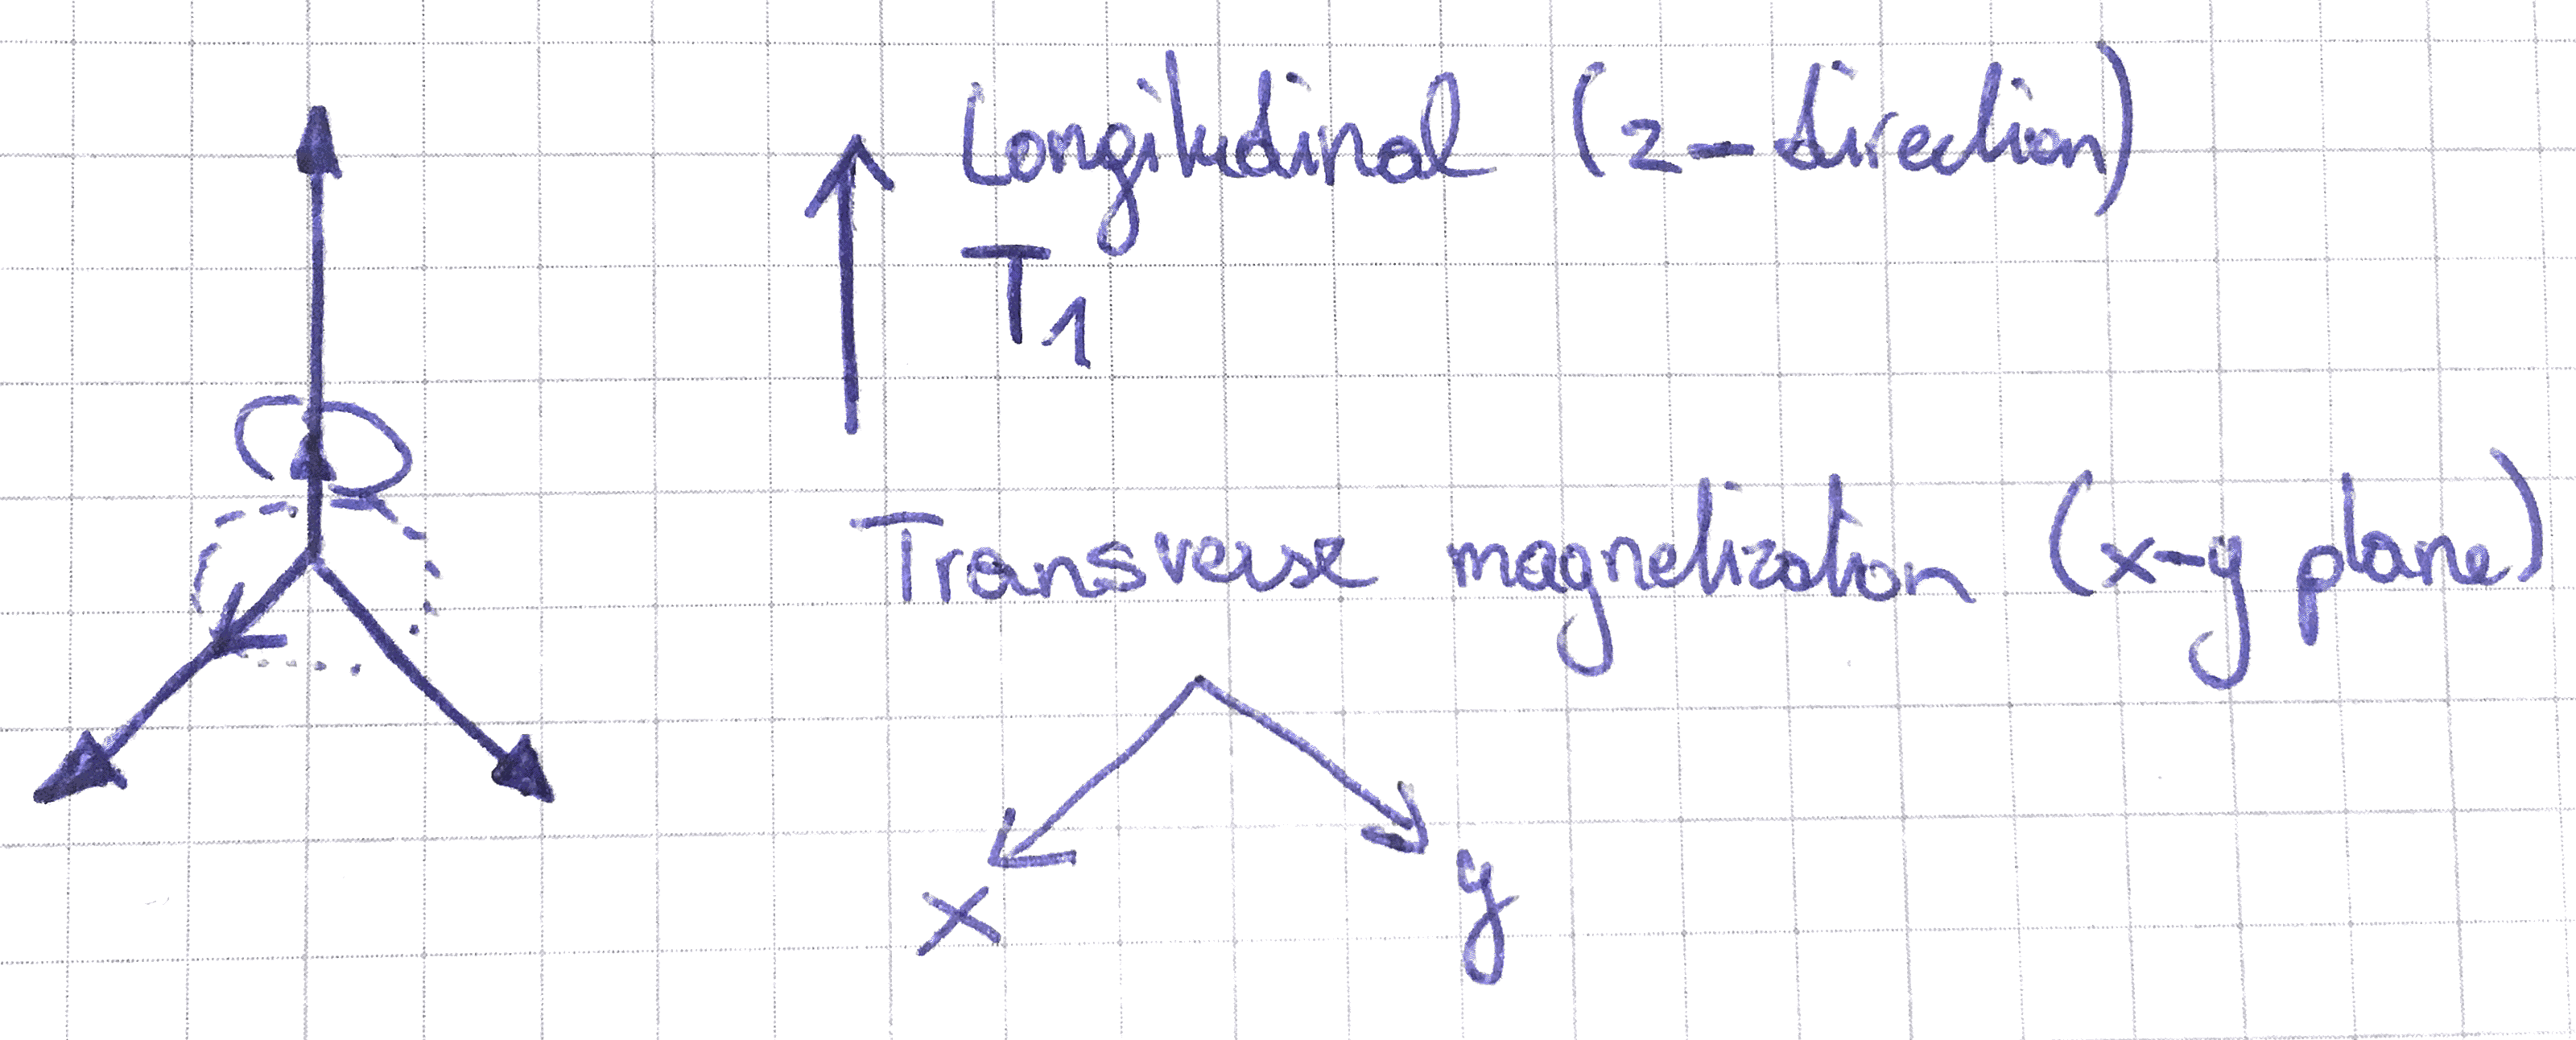 Longitudinal (z-direction)
T1
Transverse magnetization (x-y plane)
x
y